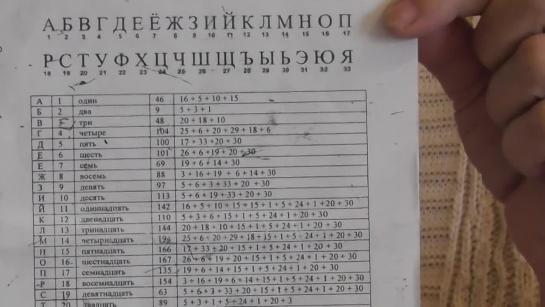 А Б В Г Д Е Ё Ж З И Й К Л М Н О П
1 2 3 4 5 6 7 8 9 10 11 12 13 14 15 16 17
Р С Т У Ф Х Ц Ч Ш Щ Ъ Ы Ь Э Ю Я
18 19 20 21 22 23 24 25 26 27 28 29 30 31 32 33
А 1 один 46 16 + 5 + 10 + 15
Б 2 два 9 5 + 3 + 1
В 3 три 48 20 + 18 + 10
Г 4 четыре 104 25 + 6 + 20 + 29 + 18 + 6
Д 5 пять 100 17 + 33 + 20 + 30
Е 6 шесть 101 26 + 6 + 19 + 20 + 30
Ё 7 семь 69 19 + 6 + 14 + 30
Ж 8 восемь 88 3 + 16 + 19 + 6 + 14 + 30
З 9 девять 97 5 + 6 + 3 + 33 + 20 + 30
И 10 десять 113 5 + 6 + 19 + 33 + 20 + 30
Й 11 одиннадцать 142 16 + 5 + 10 + 15 + 15 + 1 + 5 + 24 + 1 + 20 + 30
К 12 двенадцать 110 5 + 3 + 6 + 15 + 1 + 5 + 24 + 1 + 20 + 30
Л 13 тринадцать 144 20 + 18 + 10 + 15 + 1 + 5 + 24 + 1 + 20 + 30
М 14 четырнадцать 25 + 6 + 20 + 29 + 18 + 15 + 1 + 5 + 24 + 1 + 20 + 30
Н 15 пятнадцать 166 17 + 33 + 20 + 15 + 1 + 5 + 24 + 1 + 20 + 30
О 16 шестнадцать 167 26 + 6 + 19 + 20 + 15 + 1 + 5 + 24 + 1 + 20 + 30
П 17 семнадцать 135 19 + 6 + 14 + 15 + 1 + 5 + 24 + 1 + 20 + 30
Р 18 восемнадцать 154 3 + 16 + 19 + 6 + 14 + 15 + 1 + 5 + 24 + 1 + 20 + 30
С 19 девятнадцать 63 5 + 6 + 3 + 33 + 20 + 15 + 1 + 5 + 24 + 1 + 20 + 30
Т 20 двадцать 89 5 + 3 + 1 + 5 + 24 + 1 + 20 + 3